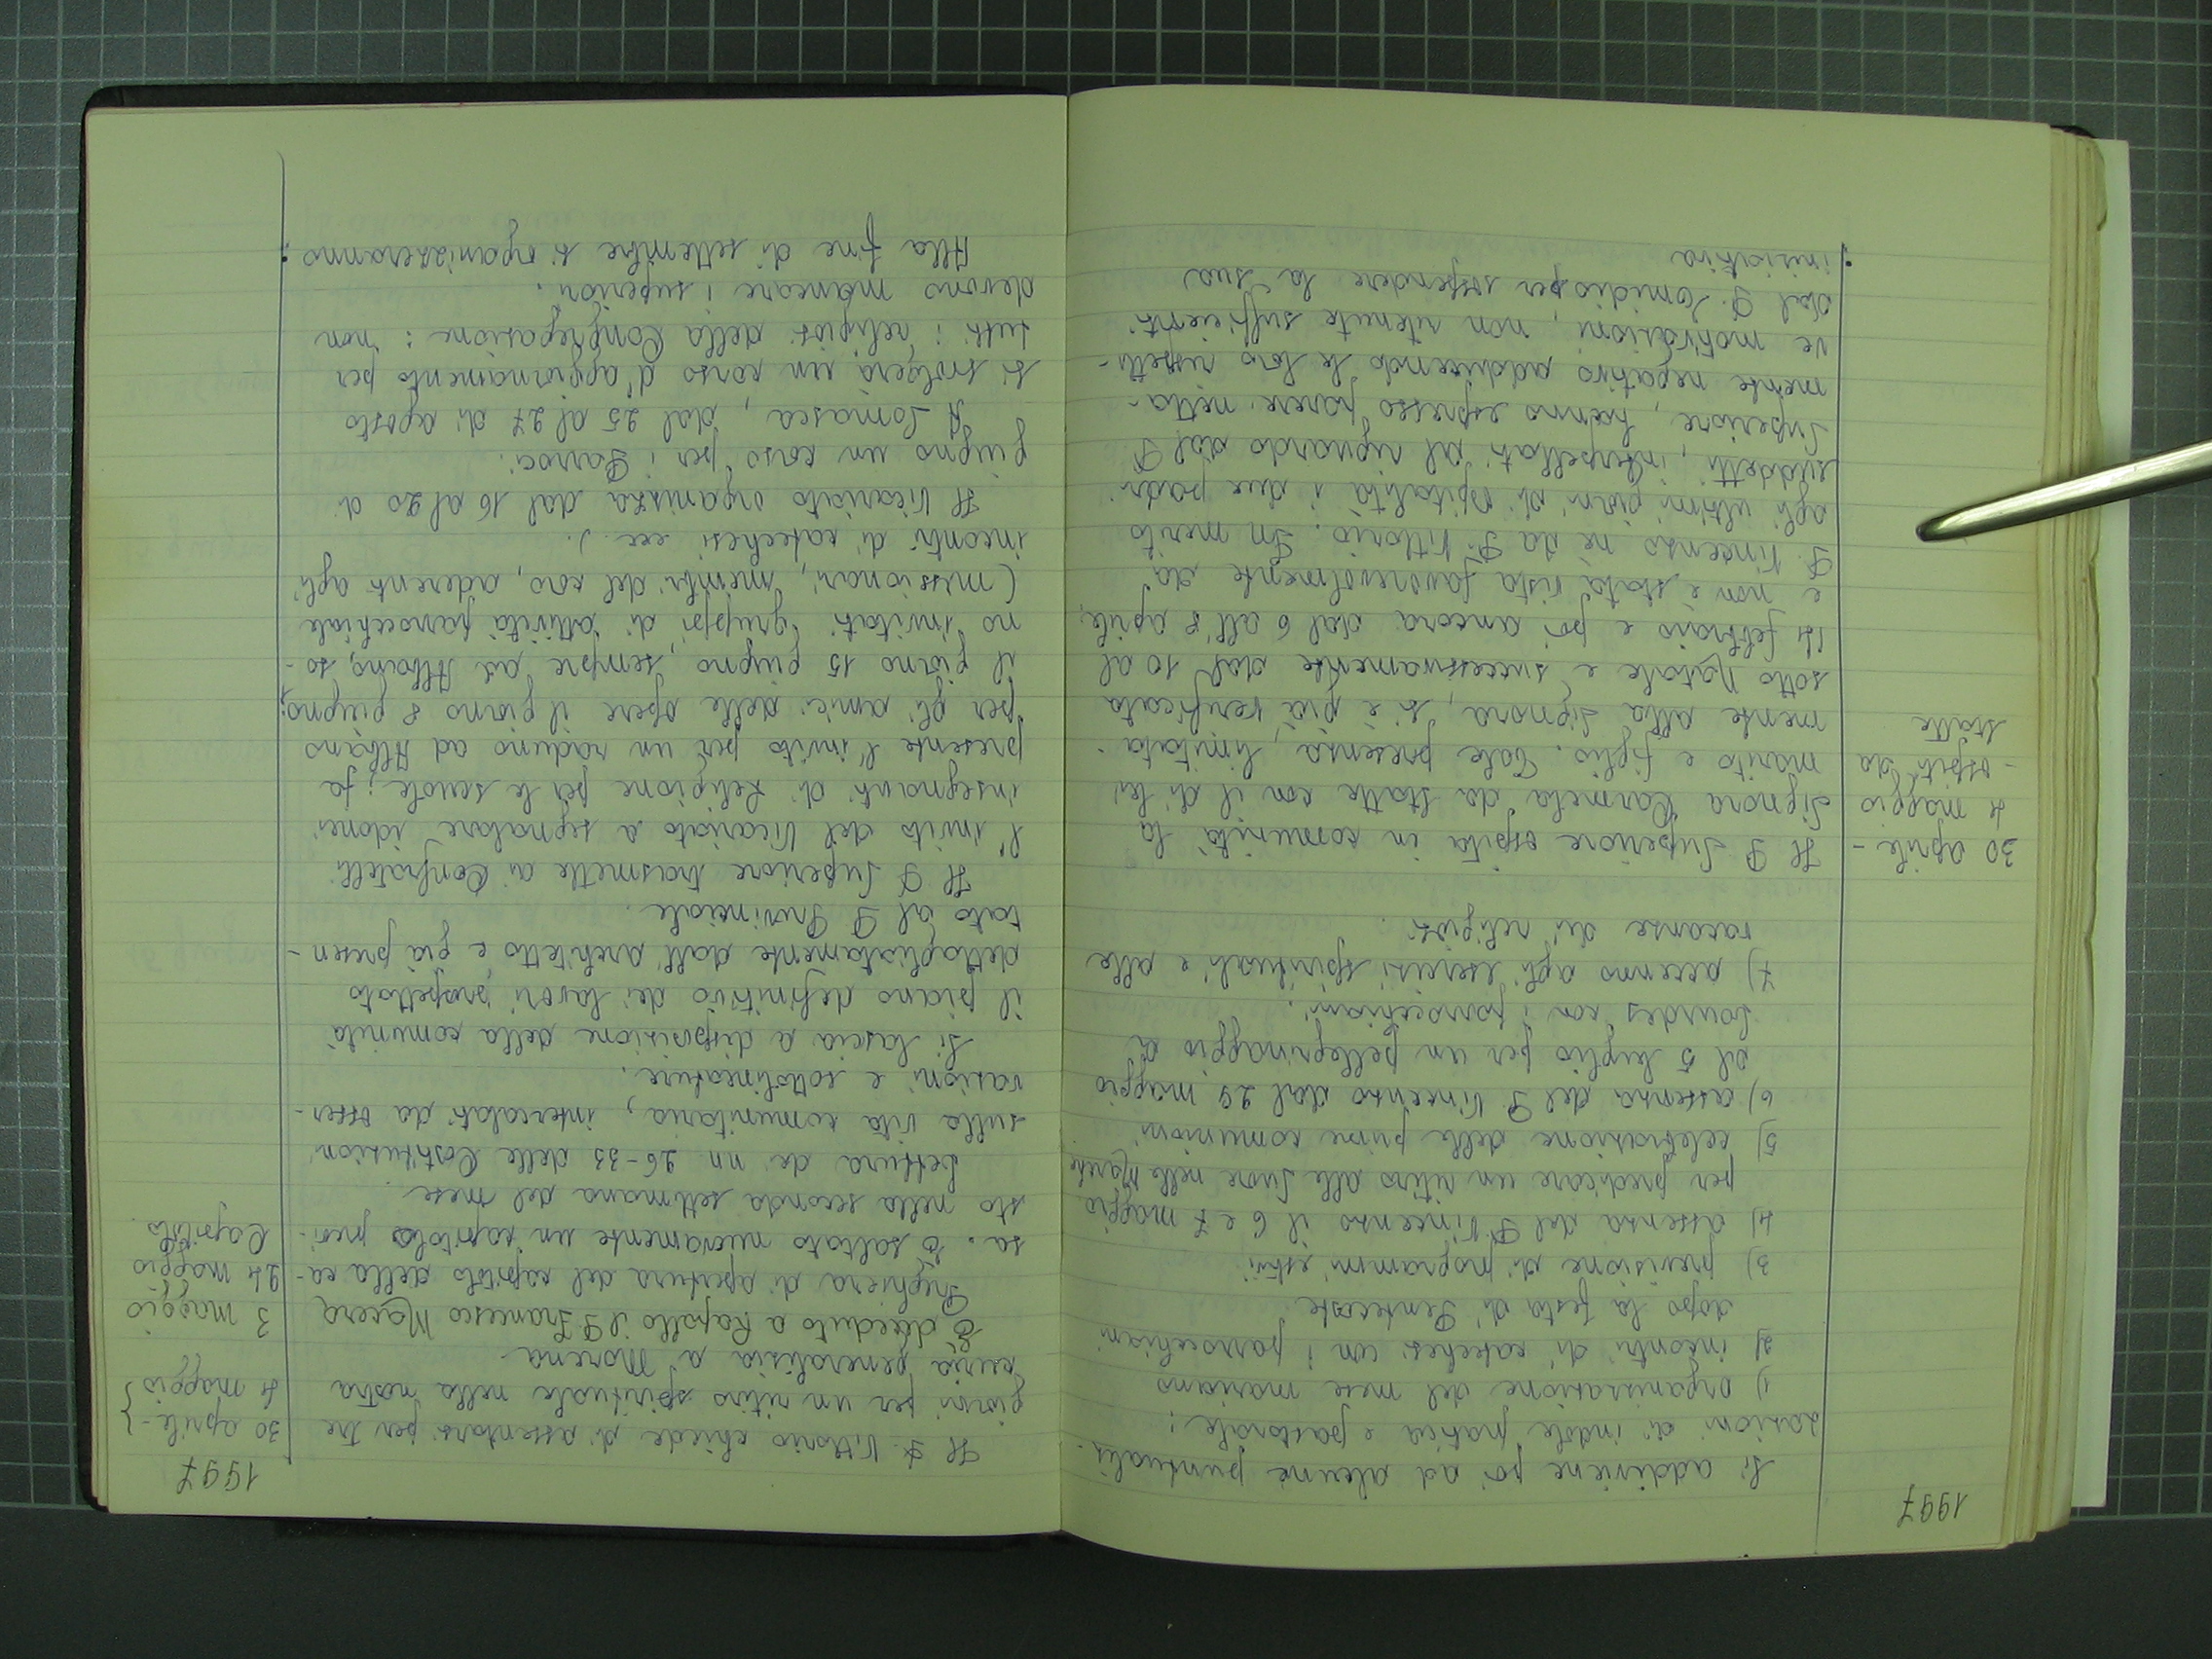 1997
Si addiviene poi ad alcune puntualiz-
zazioni di indole pratica e pastorale:
1) organizzazione del mese mariano
2) incontri di catechesi con i parrocchiani
dopo la festa di Pentecoste
3) previsione di programmi estivi
4) assenza del P. Vincenzo il 6 e 7 maggio
per predicare un ritiro alle Suore nelle Marche
5) celebrazione delle prime comunioni
6) assenza del P. Vincenzo dal 29 maggio
al 5 luglio per un pellegrinaggio a
Lourdes con i parrocchiani.
7) accenno agli esercizi spirituali e alle
vacanze dei religiosi.
30 aprile -
4 maggio
- ospiti da
Statte
Il P. Superiore ospita in comunità la
Signora Carmela da Statte con il di lei
marito e figlio. Tale presenza, limitata-
mente alla Signora, si è già verificata
sotto Natale e successivamente dal 10 al
14 febbraio e poi ancora dal 6 all'8 aprile,
e non è stata vista favorevolmente da
P. Vincenzo nè da P. Vittorio. In merito
agli ultimi giorni di ospitalità i due padri
suddetti, interpellati al riguardo dal P.
Superiore, hanno espresso parere netta-
mente negativo adducendo le loro rispetti-
ve motivazioni, non ritenute sufficienti
dal P. per sospendere la sua
iniziativa.
1997
30 aprile -
4 maggio
Il P. Vittorio chiede di assentarsi per tre
giorni per un ritiro spirituale nella nostra
curia generalizia a Morena.
3 maggio
È deceduto a Rapallo il P. Francesco Macera
24 maggio
Capitolo
Preghiera di apertura del capitolo della ca-
sa. È saltato nuovamente un capitolo previ-
sto nella seconda settimana del mese.
Lettura dei nn 26-33 delle Costituzioni
sulla vita comunitaria, intercalati da osser-
vazioni e sottolineature.
Si lascia a disposizione della comunità
il piano definitivo dei lavori progettato
dettagliatamente dall'architetto e già presen-
tato al P. Provinciale.
Il P. Superiore trasmette ai Confratelli
l'invito del Vicariato a segnalare idonei
insegnanti di religione per le scuole; fa
presente l'invito per un raduno ad Albano
per gli amici delle opere il giorno 8 giugno;
il giorno 15 giugno, sempre ad Albano, so-
no invitati gruppi di attività parrocchiale
(missionari, membri del coro, aderenti agli
incontri di catechesi ecc.).
Il Vicariato organizza dal 16 al 20 di
giugno un corso per i Parroci.
A Somasca, dal 25 al 27 di agosto
si svolgerà un corso d'aggiornamento per
tutti i religiosi della Congregazione: non
devono mancare i superiori.
Alla fine di settembre si organizzeranno